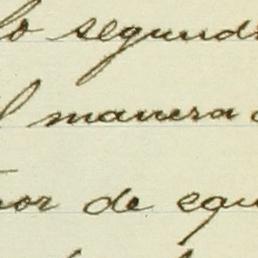 lo segund
manera
or de equ